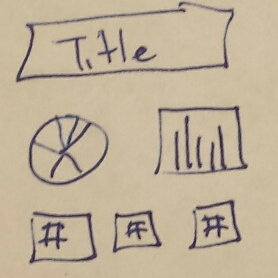 Title
# # #